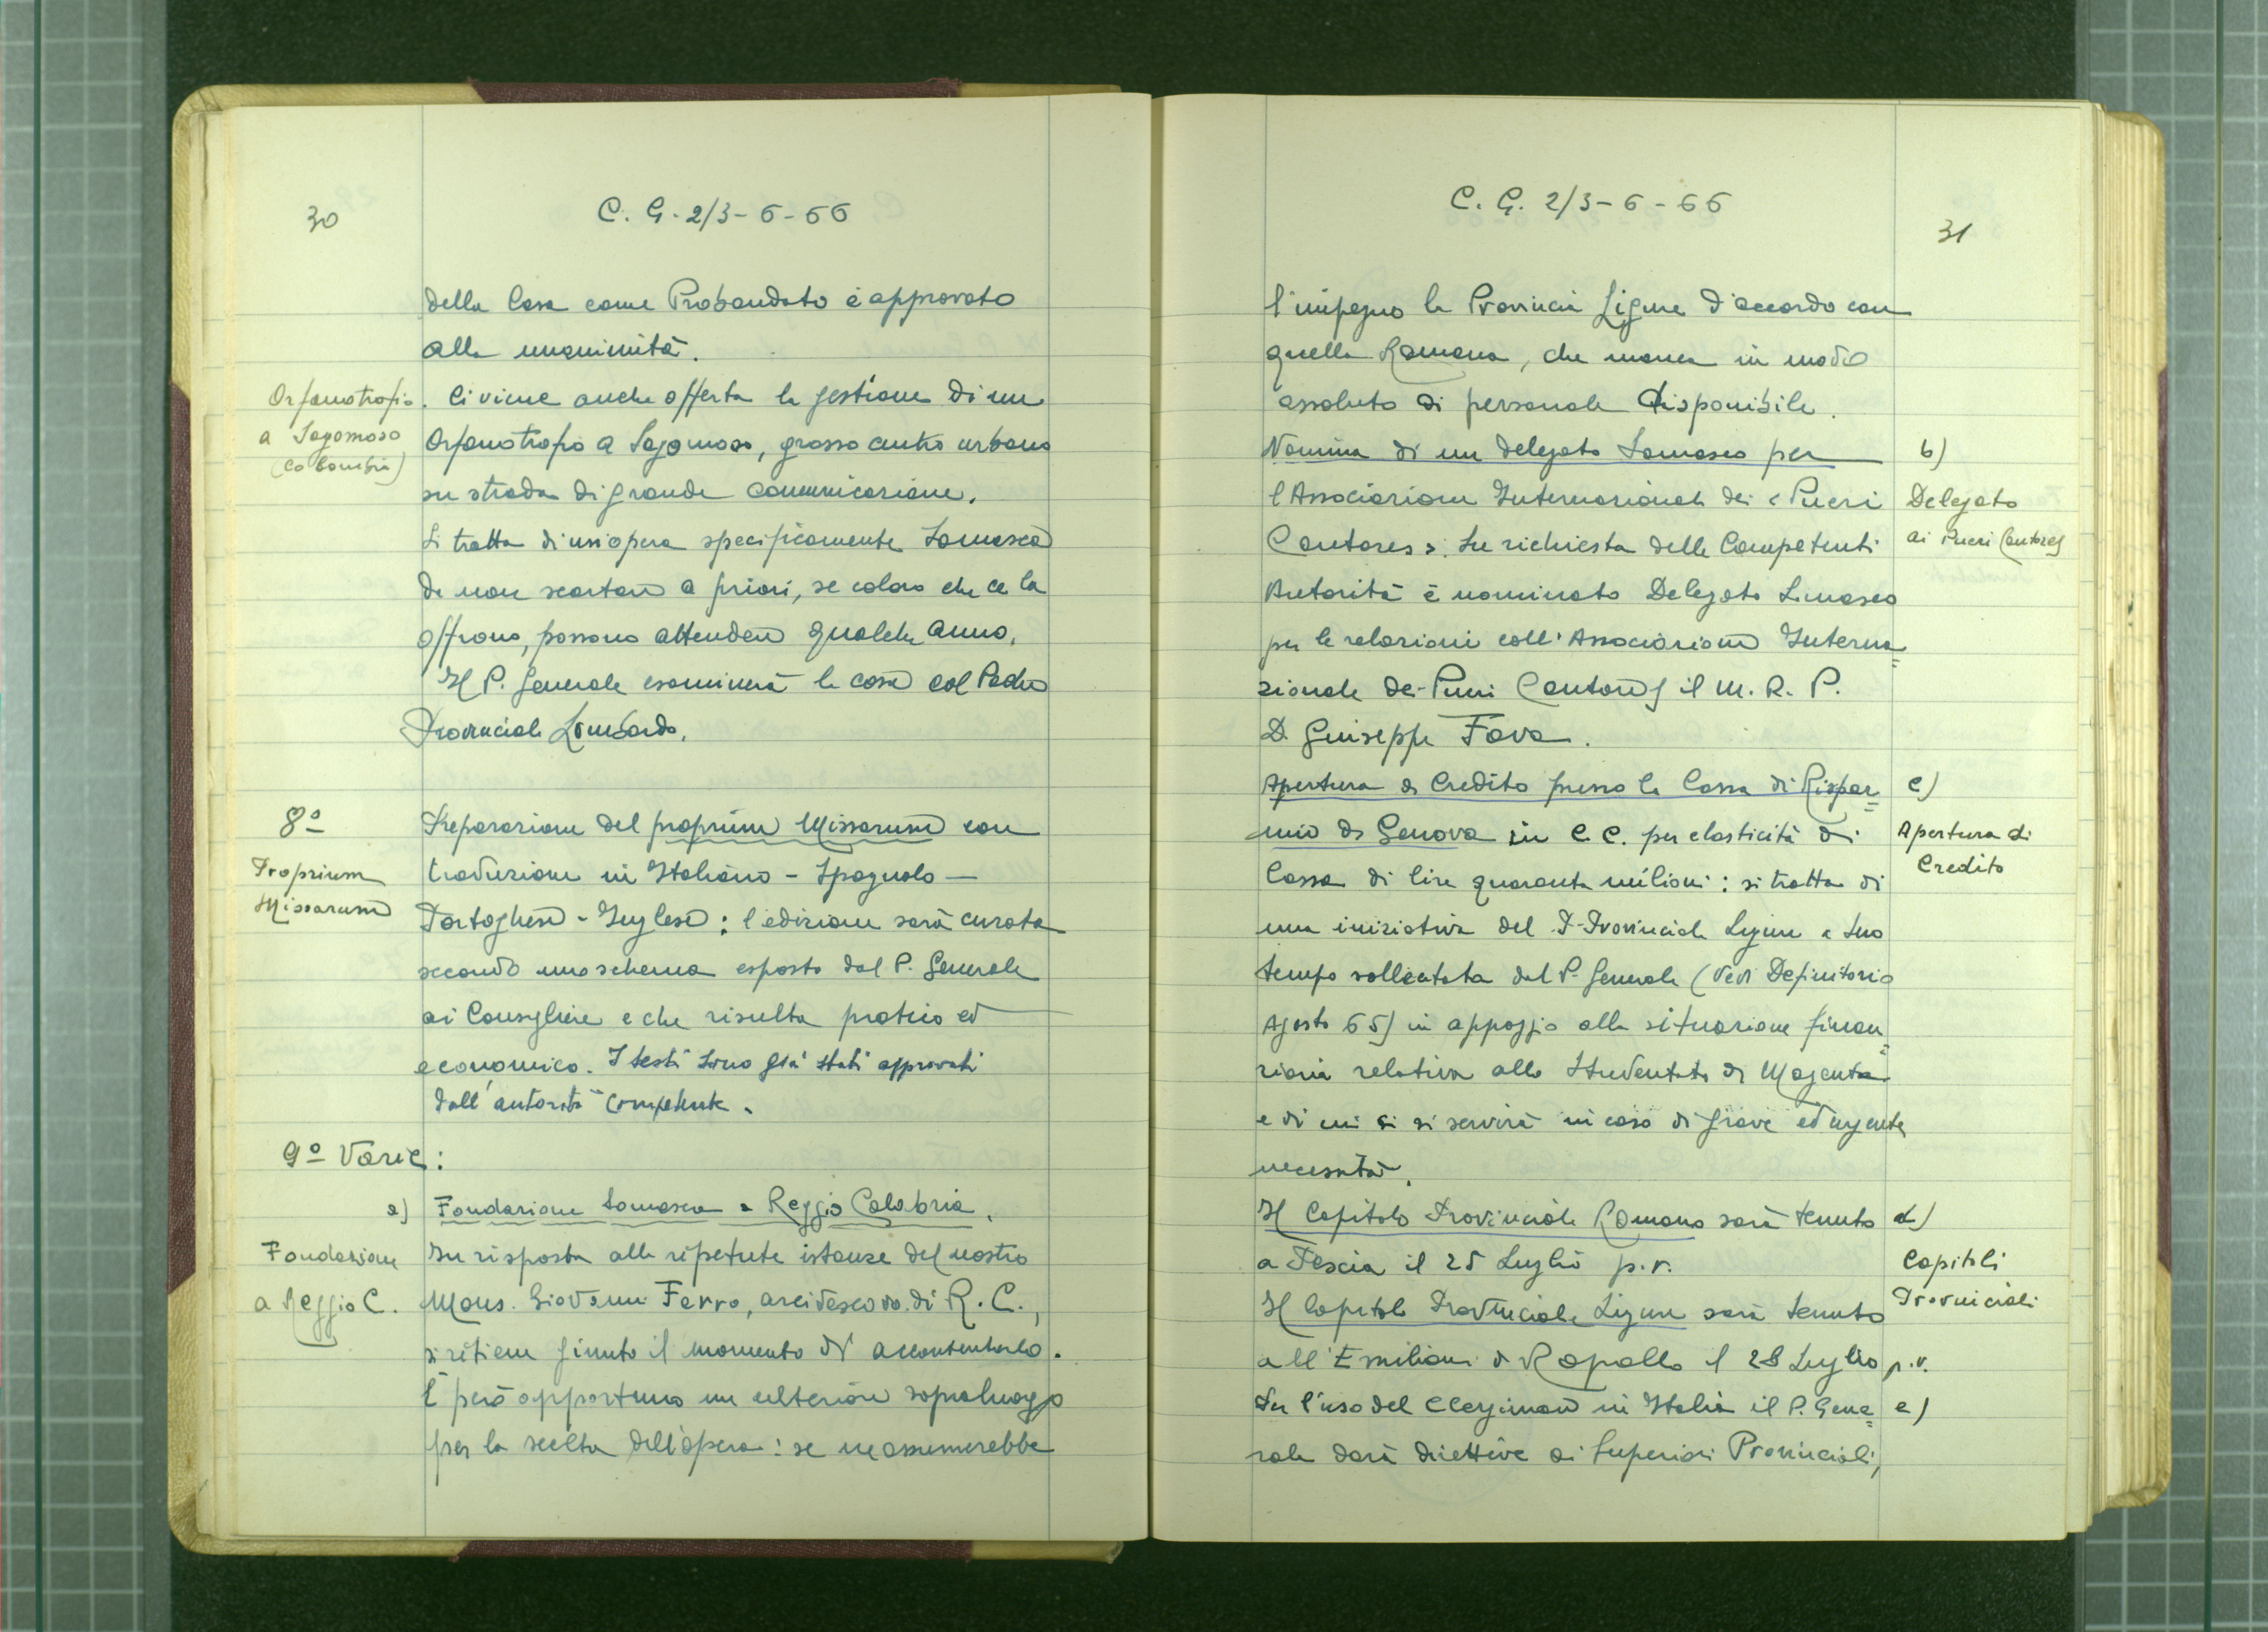 30
C. G. 2/3-6-66
della Casa come Probandato è approvato
alla unanimità.
Orfanotrofio
a Sogomoso
(Colombia)
Ci viene anche offerta la gestione di un
Orfanotrofio a Sogomoso, grosso centro urbano
su strada di grande comunicazione.
Si tratta di un'opera specificamente Somasca
da non scartare a priori, se coloro che ce la
offrono, possono attendere qualche anno.
Il P. Generale esaminerà la cosa col Padre
Provinciale Lombardo.
8º
Proprium
Missarum
Preparazione del proprium Missarum con
traduzione in Italiano - Spagnolo -
Portoghese - Inglese: l'edizione sarà curata
secondo uno schema esposto dal P. Generale
ai Consiglieri e che risulta pratico ed
economico. I testi sono già stati approvati
dall'autorità competente.
9º Varie:
a) Fondazione Somasca a Reggio Calabria.
Fondazione
a Reggio C.
In risposta alle ripetute istanze del nostro
Mons. Giovanni Ferro, arcivescovo di R. C.,
si ritiene giunto il momento di accontentarlo.
È però opportuno un ulteriore sopraluogo
per la scelta dell'opera: se ne assumerebbe
C. G. 2/3-6-66
31
l'impegno la Provincia Ligure d'accordo con
quella Romana, che manca in modo
assoluto di personale disponibile.
Nomina di un delegato Somasco per
l'Associazione Internazionale dei «Pueri
Cantores». Su richiesta delle Competenti
Autorità è nominato Delegato Somasco
per le relazioni coll'Associazione Interna=
zionale dei Pueri Cantores il M. R. P.
D. Giuseppe Fava.
b)
Delegato
ai Pueri Cantores
Apertura di Credito presso la Cassa di Rispar=
mio di Genova in C.C. per elasticità di
Cassa di lire quaranta milioni: si tratta di
una iniziativa del P. Provinciale Ligure a suo
tempo sollecitata dal P. Generale (vedi Definitorio
Agosto 65) in appoggio alla situazione finan=
ziaria relativa allo Studentato di Magenta
e di cui ci si servirà in caso di grave ed urgente
necessità.
c)
Apertura di
Credito
Il Capitolo Provinciale Romano sarà tenuto
a Pescia il 25 Luglio p.v.
Il Capitolo Provinciale Ligure sarà tenuto
all'Emiliani di Rapallo il 28 Luglio p.v.
d)
Capitoli
Provinciali
Per l'uso del Clergiman in Italia il P. Gene=
rale darà direttive ai Superiori Provinciali,
e)